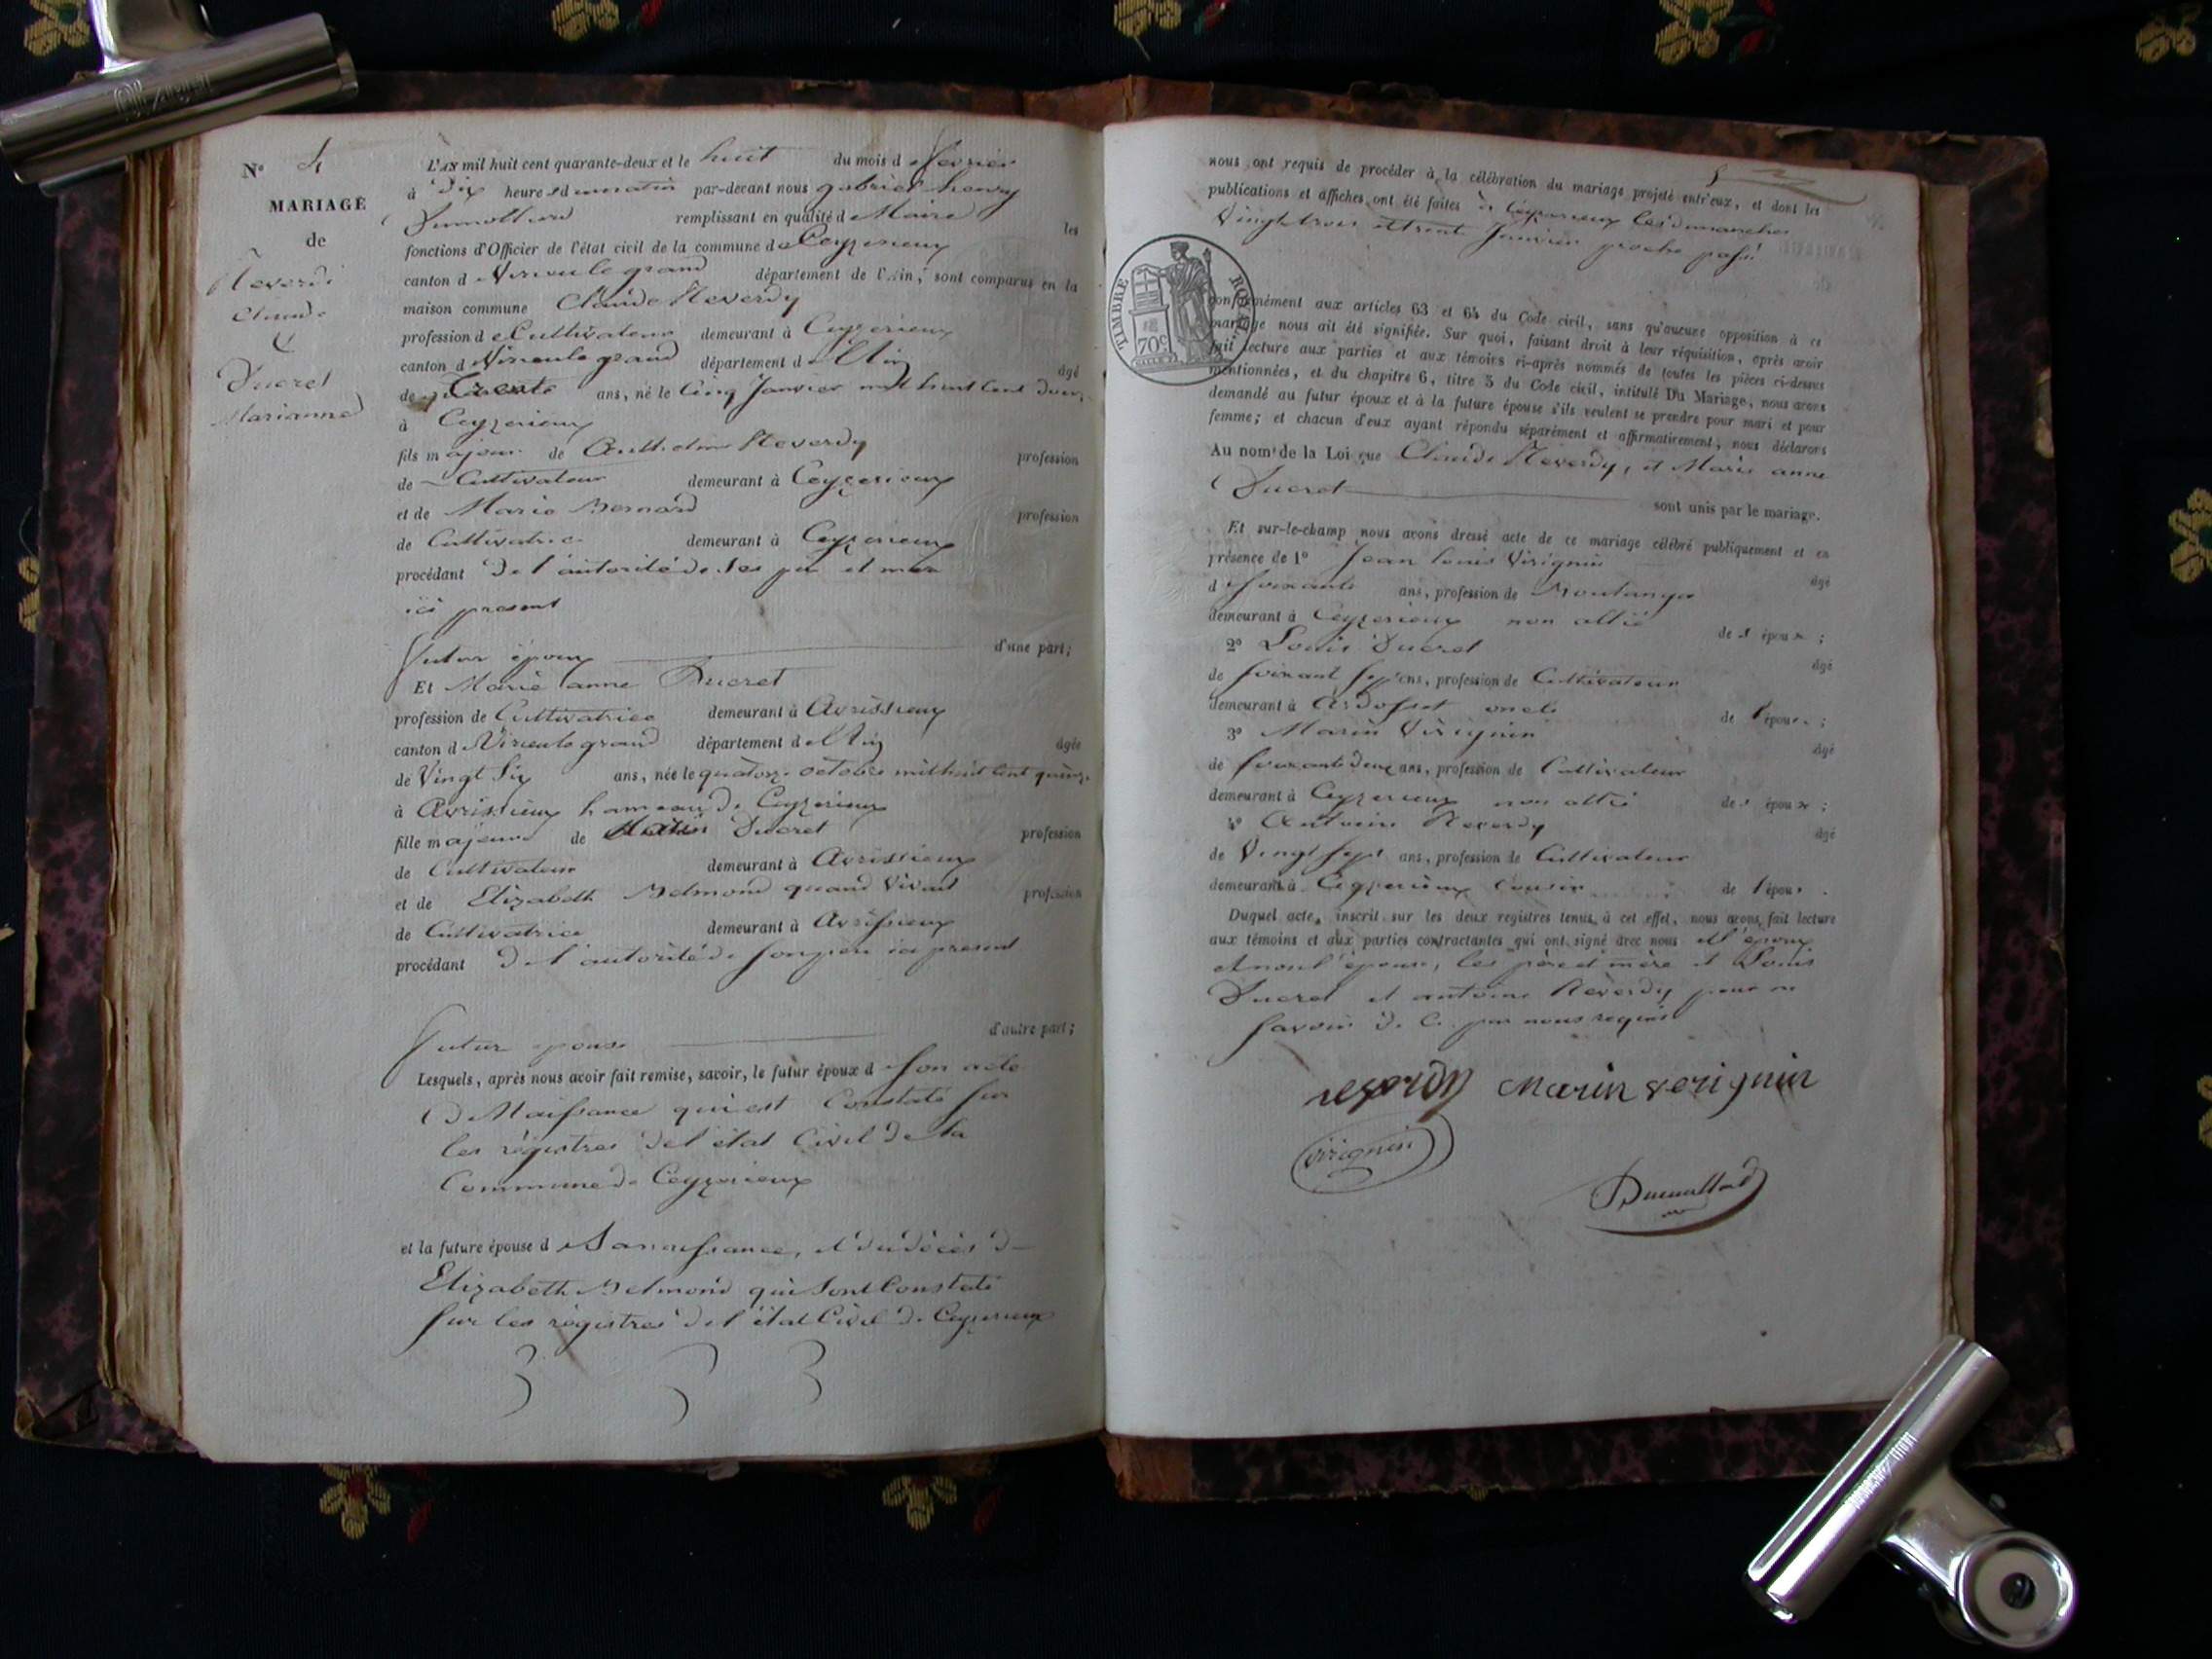 N° 4
MARIAGE
de
Reverdi
Claude
&
Ducret
Marianne
L'AN mil huit cent quarante-deux et le huit du mois de fevrier
à dix heures du matin par-devant nous gabriel henry
remplissant en qualité de Maire les
fonctions d'Officier de l'état civil de la commune de Ceyzerieux
canton de Virieu le grand département de l'Ain, sont comparus en la
maison commune Claude Reverdy
profession de Cultivateur demeurant à Ceyzerieux
canton de Virieu le grand département de l'Ain âgé
de Trente ans, né le Cinq Janvier mil huit Cent douze
à Ceyzerieux
fils majeur de Anthelme Reverdy profession
de Cultivateur demeurant à Ceyzerieux
et de Marie Bernard profession
de Cultivatrice demeurant à Ceyzerieux
procédant de l'autorité de ses père et mère
ici present
futur époux d'une part;
Et Marie anne Ducret
profession de Cultivatrice demeurant à Avrissieux
canton de Virieu le grand département de l'Ain âgée
de Vingt Six ans, née le quatorze octobre mil huit Cent quinze
à Avrissieux hameau de Ceyzerieux
fille majeure de Ducret profession
de Cultivateur demeurant à Avrissieux
et de Elizabeth Belmond quand vivait profession
de Cultivatrice demeurant à Avrissieux
procédant de l'autorité de son père ici present
futur epouse d'autre part;
Lesquels, après nous avoir fait remise, savoir, le futur époux de son acte
de Naissance qui est Constaté sur
les régistres de l'état Civil de la
Commune de Ceyzerieux
et la future épouse de Sa naissance, et du décès de
Elizabeth Belmond qui sont Constaté
sur les régistres de l'état Civil de Ceyzerieux
5
nous ont requis de procéder à la célébration du mariage projeté entr'eux, et dont les
publications et affiches ont été faites à Ceyzerieux les dimanches
Vingt trois et trente Janvier proche passé
TIMBRE ROYAL
70c
conformément aux articles 63 et 64 du Code civil, sans qu'aucune opposition à ce
mariage nous ait été signifiée. Sur quoi, faisant droit à leur réquisition, après avoir
fait lecture aux parties et aux témoins ci-après nommés de toutes les pièces ci-dessus
mentionnées, et du chapitre 6, titre 5 du Code civil, intitulé Du Mariage, nous avons
demandé au futur époux et à la future épouse s'ils veulent se prendre pour mari et pour
femme; et chacun d'eux ayant répondu séparément et affirmativement, nous déclarons
Au nom de la Loi que Claude Reverdy, et Marie anne
Ducret sont unis par le mariage.
Et sur-le-champ nous avons dressé acte de ce mariage célébré publiquement et en
présence de 1° Jean louis Virignin âgé
de soixante ans, profession de Boulanger
demeurant à Ceyzerieux non allié des époux;
2° Louis Ducret âgé
de soixant sept ans, profession de Cultivateur
demeurant à Ardosset oncle de l'épouse;
3° Marin Virignin âgé
de soixante deux ans, profession de Cultivateur
demeurant à Ceyzerieux non allié des époux;
4° Antoine Reverdy âgé
de Vingt sept ans, profession de Cultivateur
demeurant à Ceyzerieux Cousin de l'époux.
Duquel acte, inscrit sur les deux registres tenus à cet effet, nous avons fait lecture
aux témoins et aux parties contractantes qui ont signé avec nous et l'époux
et non l'épouse, les père et mère et Louis
Ducret et antoine Reverdy pour ne
savoir de Ce par nous requis
reverdy Marin verignin
Virignin